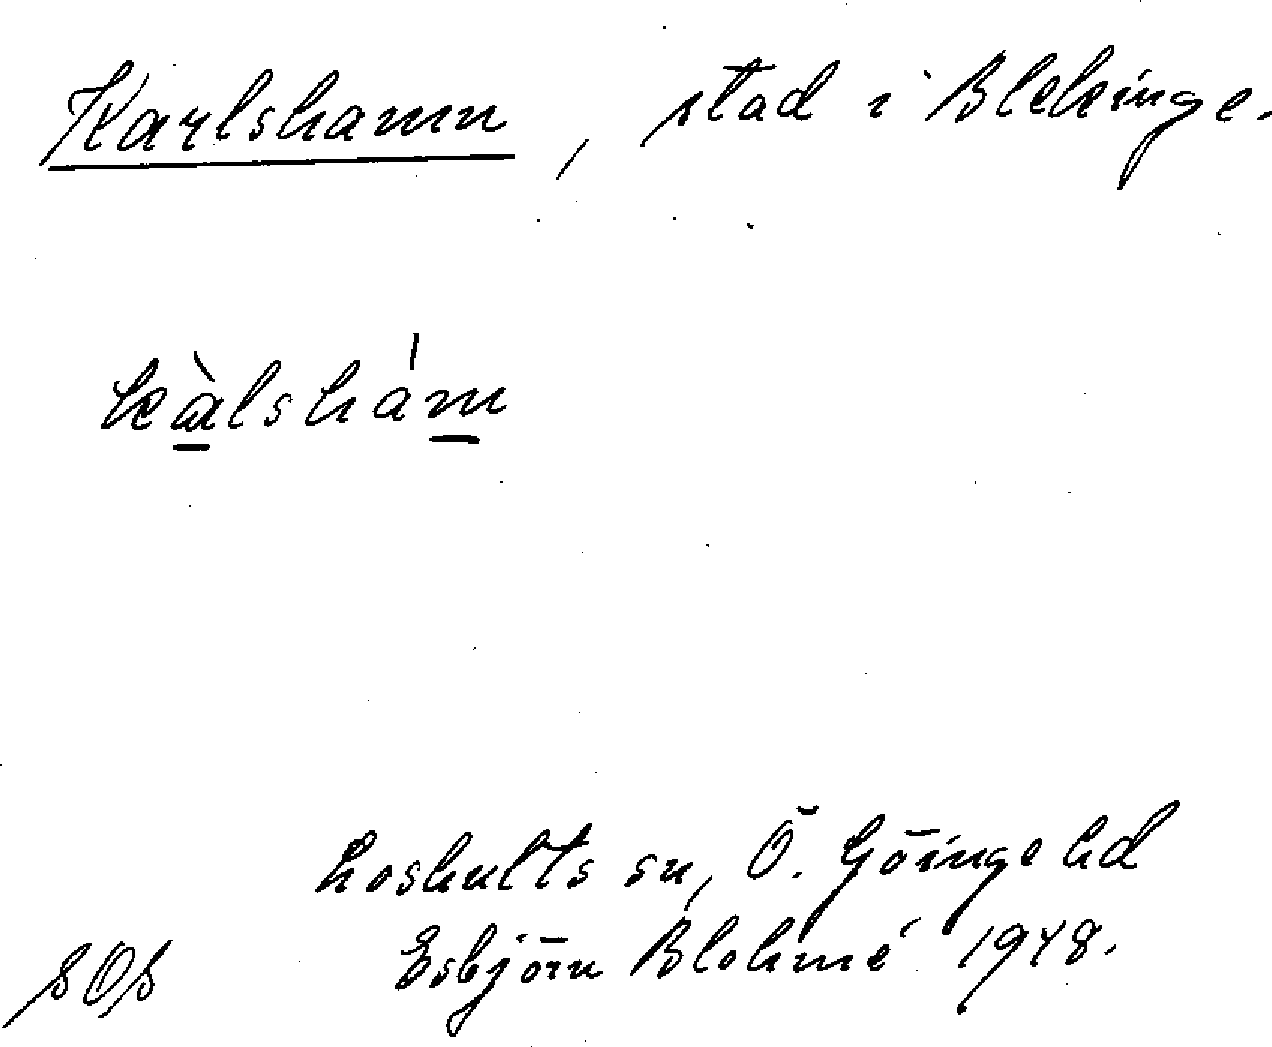 Karlshamn, stad i Blekinge.
kàlshám
Loshults sn, Ö. Göinge hd
Esbjörn Blohmé 1948.
SOS